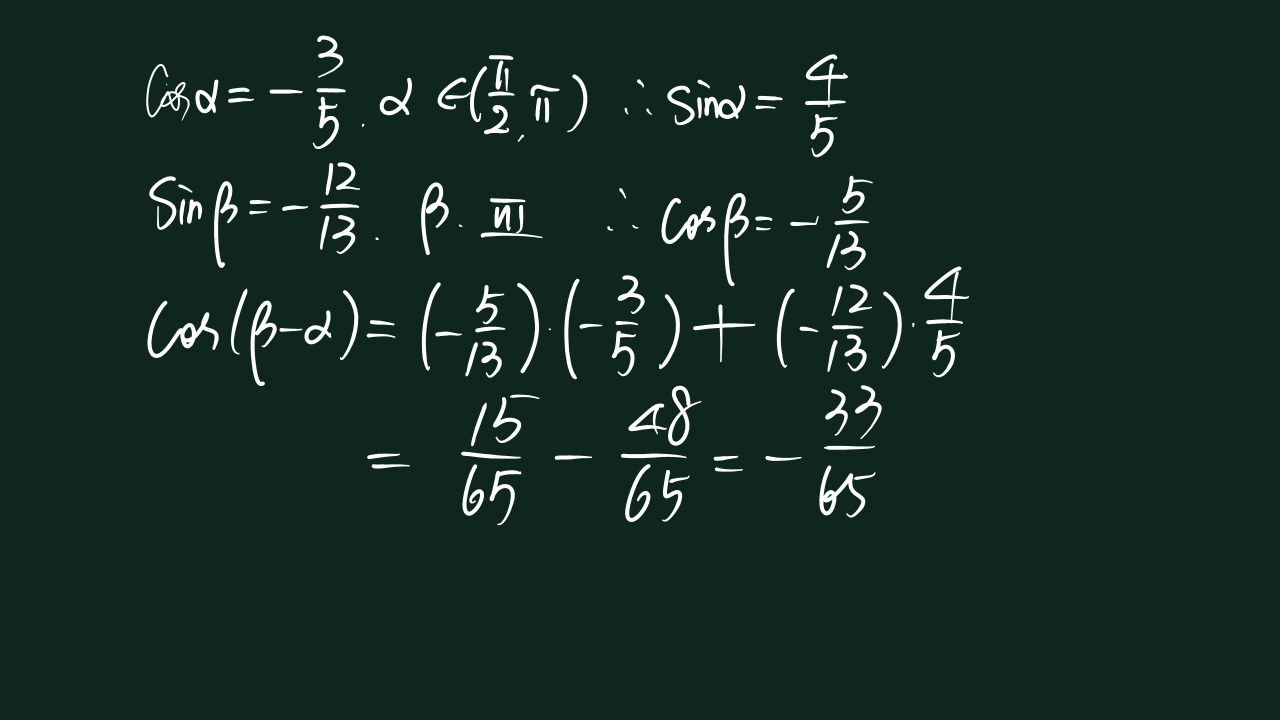 cosα = -3/5. α ∈ (π/2, π) ∴ sinα = 4/5
Sinβ = -12/13. β. III ∴ cosβ = -5/13
cos(β-α) = (-5/13)·(-3/5) + (-12/13)·4/5
= 15/65 - 48/65 = -33/65